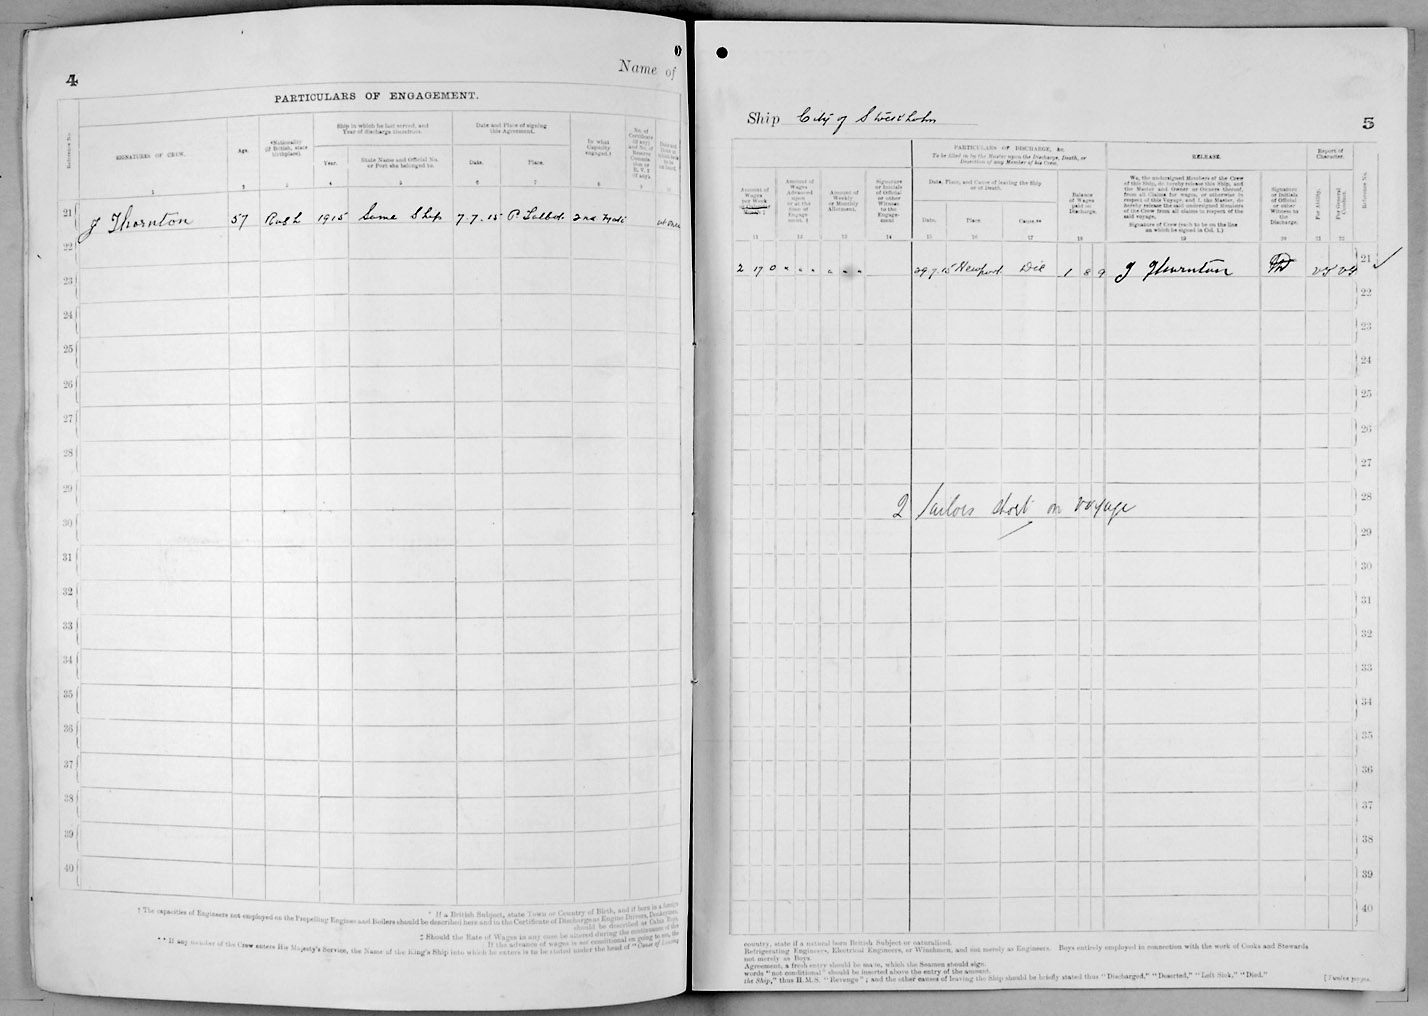 4
Name of
PARTICULARS OF ENGAGEMENT.
Reference No.
SIGNATURES OF CREW.
Age.
*Nationality
(if British, state
birthplace).
Ship in which he last served, and
Year of discharge therefrom.
Year.
State Name and Official No.
or Port she belonged to.
Date and Place of signing
this Agreement.
Date.
Place.
In what
Capacity
engaged.†
1
4
5
6
7
8
9
21 J Thornton 57 1915 Same Ship 7.7.15 P Talbot 2nd
22
23
24
25
26
27
28
29
30
31
32
33
34
35
36
37
38
39
40
* If a British Subject, state Town or Country of Birth, and if born in a foreign
† The capacities of Engineers not employed on the Propelling Engines and Boilers should be described here and in the Certificate of Discharge as Engine Drivers, Donkeymen,
should be described as Cabin Boys,
‡ Should the Rate of Wages in any case be altered during the continuance of the
If the advance of wages is not conditional on going to sea, the
** If any member of the Crew enters His Majesty's Service, the Name of the King's Ship into which he enters is to be stated under the head of "Cause of Leaving
Ship City of Stockholm
5
Amount of
Wages
per Week
Amount of
Wages
Advanced
upon
or at the
time of
Engage-
ment. ‡
Amount of
Weekly
or Monthly
Allotment.
Signature
or Initials
of Official
or other
Witness
to the
Engage-
ment
PARTICULARS OF DISCHARGE, &c.
To be filled in by the Master upon the Discharge, Death, or
Desertion of any Member of his Crew.
Date, Place, and Cause of leaving the Ship
or of Death.
Date.
Place.
Cause.**
Balance
of Wages
paid on
Discharge.
RELEASE.
We, the undersigned Members of the Crew
of this Ship, do hereby release this Ship, and
the Master and Owner or Owners thereof,
from all Claims for wages, or otherwise in
respect of this Voyage, and I, the Master, do
hereby release the said undersigned Members
of the Crew from all claims in respect of the
said voyage.
Signature of Crew (each to be on the line
on which he signed in Col. 1.)
Signature
or Initials
of Official
or other
Witness to
the
Discharge.
Report of
Character.
For Ability.
For General
Conduct.
Reference No.
11
12
13
14
15
16
17
18
19
20
21
22
2 17 0 29.7.15 Newport Dis 1 8 9 J Thornton VG VG 21
22
23
24
25
26
27
28
2 Sailors short on voyage
29
30
31
32
33
34
35
36
37
38
39
40
country, state if a natural born British Subject or naturalised.
Refrigerating Engineers, Electrical Engineers, or Winchmen, and not merely as Engineers. Boys entirely employed in connection with the work of Cooks and Stewards
not merely as Boys.
Agreement, a fresh entry should be made, which the Seamen should sign.
words "not conditional" should be inserted above the entry of the amount.
the Ship," thus H.M.S. "Revenge"; and the other causes of leaving the Ship should be briefly stated thus "Discharged," "Deserted," "Left Sick," "Died."
[Twelve pages.